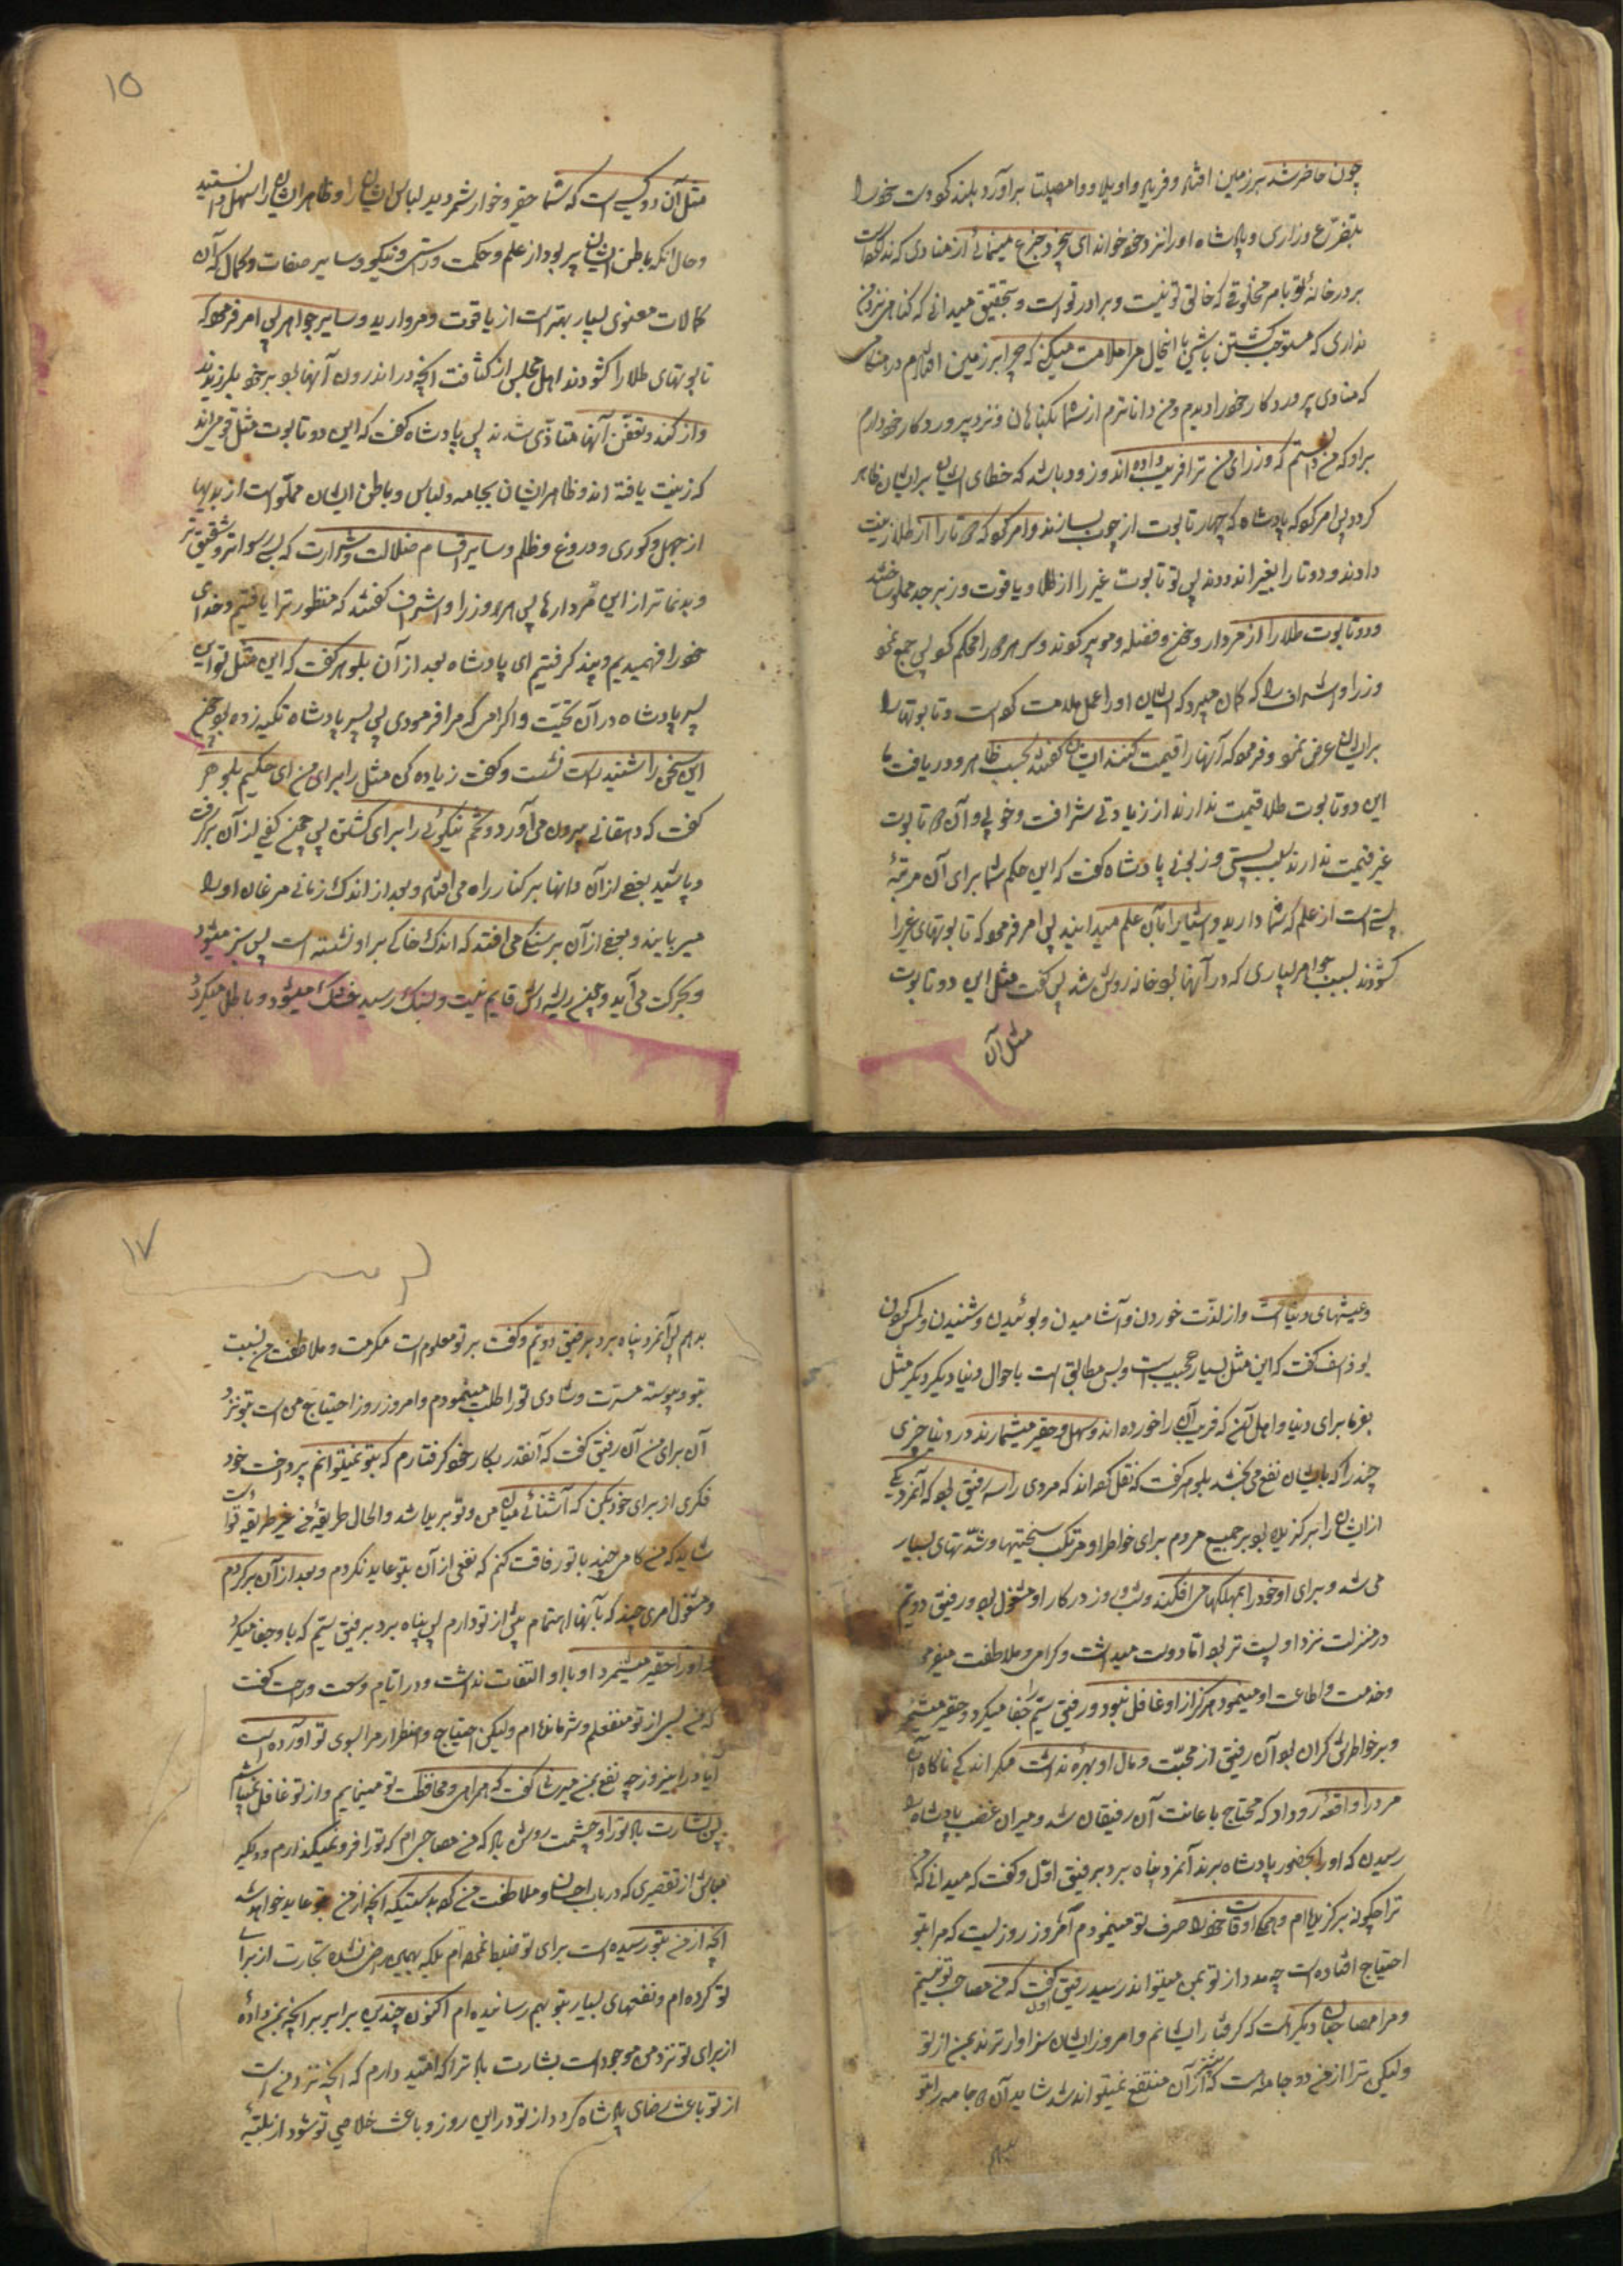 چون حاضر شد بر زمین افتاد و فریاد واویلا و وامصیبتا برآورد بلند کرد دست خود را
بتضرّع و زاری و پادشاه او را نزد خود خواند ای بیخرد جزع مینمائی از منادی که ندا کرده است
بر در خانهٔ تو بامر مخلوقی که خالق تو نیست و برادر تو است و بتحقیق میدانی که گناهی نزد من
نداری که مستوجب کشتن باشی با اینحال مرا ملامت میکنی که چرا بر زمین افتادم در هنگامی
که منادی پروردگار خود را دیدم و من داناترم از شما بگناهان و نزد پروردگار خود دارم
برو که من دانستم که وزرای من ترا فریب داده‌اند و زود باشد که خطای ایشان بر ایشان ظاهر
گردد پس امر کرد پادشاه که چهار تابوت از چوب بسازند و امر کرد که دو تا را از طلا زینت
دادند و دو تا را بقیر اندودند پس دو تابوت قیر را از طلا و یاقوت و زبرجد مملو ساختند
و دو تابوت طلا را از مردار و خون و فضله و مو پر کردند و سر هر دو را محکم کرد پس جمع نمود
وزرا و اشراف را که گمان میبرد که ایشان او را بعمل ملامت کرده است و تابوتها را
بر ایشان عرض نمود و فرمود که آنها را قیمت کنند ایشان گفتند بحسب ظاهر و دریافت ما
این دو تابوت طلا قیمت ندارند از زیادتی شرافت و خوبی و آن دو تابوت
قیر قیمت ندارند بسبب پستی و زبونی پادشاه گفت که این حکم شما برای آن مرتبهٔ
پستی است از علم که شما دارید و اشیا را بآن علم میدانید پس امر فرمود که تابوتهای قیر را
گشودند بسبب جواهر بسیاری که در آنها بود خانه روشن شد پس گفت مثل این دو تابوت
مثل آن
۱۵
مثل آن دو کسی است که شما حقیر و خوار شمردید لباس ایشان را و ظاهر ایشان را سهل دانستید
و حال آنکه باطن ایشان پر بود از علم و حکمت و راستی و نیکی و سایر صفات و کمال که آن
کمالات معنوی بسیار بهتر است از یاقوت و مروارید و سایر جواهر پس امر فرمود که
تابوتهای طلا را گشودند اهل مجلس از کثافت آنچه در اندرون آنها بود بر خود بلرزیدند
و از گند و تعفّن آنها متاذّی شدند پس پادشاه گفت که این دو تابوت مثل قومی‌اند
که زینت یافته‌اند و ظاهر ایشان بجامه و لباس و باطن ایشان مملّو است از بدیها
از جهل و کوری و دروغ و ظلم و سایر اقسام ضلالت و شرارت که بسی رسواتر و شقیق‌تر
و بدنماتر از این مُردارها پس همه وزرا و اشراف گفتند که منظور ترا یافتیم و خطای
خود را فهمیدیم و پند گرفتیم ای پادشاه بعد از آن بلوهر گفت که این مثل تو است ای
پسر پادشاه در آن تحیّت و اکرامی که مرا فرمودی پس پسر پادشاه تکیه زده بود چون
این سخن را شنید راست نشست و گفت زیاده کن مثل را برای من ای حکیم بلوهر
گفت که دهقانی بیرون می‌آورد تخم نیکوئی را برای کشتن پس چون کفی از آن برگرفت
و پاشید بعضی از آن دانها بر کنار راه می‌افتد و بعد از اندک زمانی مرغان او را
میربایند و بعضی از آن بر سنگی می‌افتد که اندک خاکی بر او نشسته است پس سبز میشود
و بحرکت می‌آید و چون ریشه‌اش قایم نیست و بسنگ رسید خشک میشود و باطل میگردد
و عیشهای دنیا است و از لذّت خوردن و آشامیدن و بوئیدن و شنیدن و لمس کردن
بوذاسف گفت که این مثل بسیار عجیب است و بس مطابق است باحوال دنیا دیگر مثل
بفرما برای دنیا و اهل آن که فریب آن را خورده‌اند و سهل و حقیر میشمارند در دنیا چیزی
چند را که بایشان نفع می‌بخشد بلوهر گفت که نقل کرده‌اند که مردی را سه رفیق بود که آنمرد یکی
از ایشان را برگزیده بود بر جمیع مردم برای خاطر او مرتکب سختیها و شدّتهای بسیار
می‌شد و برای او خود را بمهلکها می‌افکند و شب و روز در کار او مشغول بود و رفیق دویّم
در منزلت نزد او پست‌تر بود امّا دوست میداشت و کرامی و ملاطفت میفرمود
و خدمت و اطاعت او مینمود هرگز از او غافل نبود و رفیق سیّم را جفا میکرد و حقیر میشمرد
و بر خاطرش گران بود آن رفیق از محبّت و مال او بهرهٔ نداشت مگر اندکی ناگاه آن
مرد را واقعهٔ رو داد که محتاج باعانت آن رفیقان شد و میران غضب پادشاه
رسیدن که او را بحضور پادشاه برند آنمرد پناه برد برفیق اوّل و گفت که میدانی که من
ترا چگونه برگزیده‌ام و همه اوقات خود را صرف تو مینمودم امروز روزیست که مرا بتو
احتیاج افتاده است چه مدد از تو بمن میتواند رسید رفیق اول گفت که من مصاحب تو نیستم
و مرا مصاحبان دیگر است که گرفتار ایشانم و امروز ایشان سزاوارترند بمن از تو
ولیکن ترا از من دو جامه است که از آن منتفع نمیتوانی شد شاید آن دو جامه را بتو
بدهم
۱۷
بدهم پس آنمرد پناه برد برفیق دویّم و گفت بر تو معلوم است مکرمت و ملاطفت من نسبت
بتو و پیوسته مسرّت و شادی تو را طلب مینمودم و امروز روز احتیاج من است بتو نزد
آن برای من آن رفیق گفت که آنقدر بکار خود گرفتارم که بتو نمیتوانم پرداخت خود
فکری از برای خود بکن که آشنائی میان من و تو بریده شد و الحال طریقهٔ من غیر طریقه تو است
شاید که من گامی چند با تو رفاقت کنم که نفعی از آن بتو عاید نگردد و بعد از آن برگردم
و مشغول امری چند که بآنها اهتمام بیش از تو دارم پس پناه برد برفیق سیّم که با او جفا میکرد
و او را حقیر میشمرد و با او التفات نداشت و در ایّام وسعت و راحت گفت
که من بسی از تو منفعلم و شرمنده‌ام ولیکن احتیاج و اضطرار مرا بسوی تو آورده است
آیا در اینروز چه نفع بمن میرسانی گفت که همراهی و محافظت تو مینمایم و از تو غافل نمیباشم
پس بشارت باد تو را و چشمت روشن باد که من مصاحبی‌ام که تو را فرو نمیگذارم و دلگیر
مباش از تقصیری که در باب احسان و ملاطفت من کرده بدرستیکه آنچه از من بتو عاید خواهد شد
آنچه از من بتو رسیده است برای تو ضبط نموده‌ام بلکه بهمین راضی نشده تجارت از برای
تو کرده‌ام و نفعهای بسیار بتو بهم رسانیده‌ام اکنون چندین برابر برآنچه بمن دادهٔ
از برای تو نزد من موجود است بشارت باد ترا که امّید دارم که آنچه نزد من است
از تو باعث رضای پادشاه گردد از تو در این روز و باعث خلاصی تو شود از بلیّهٔ